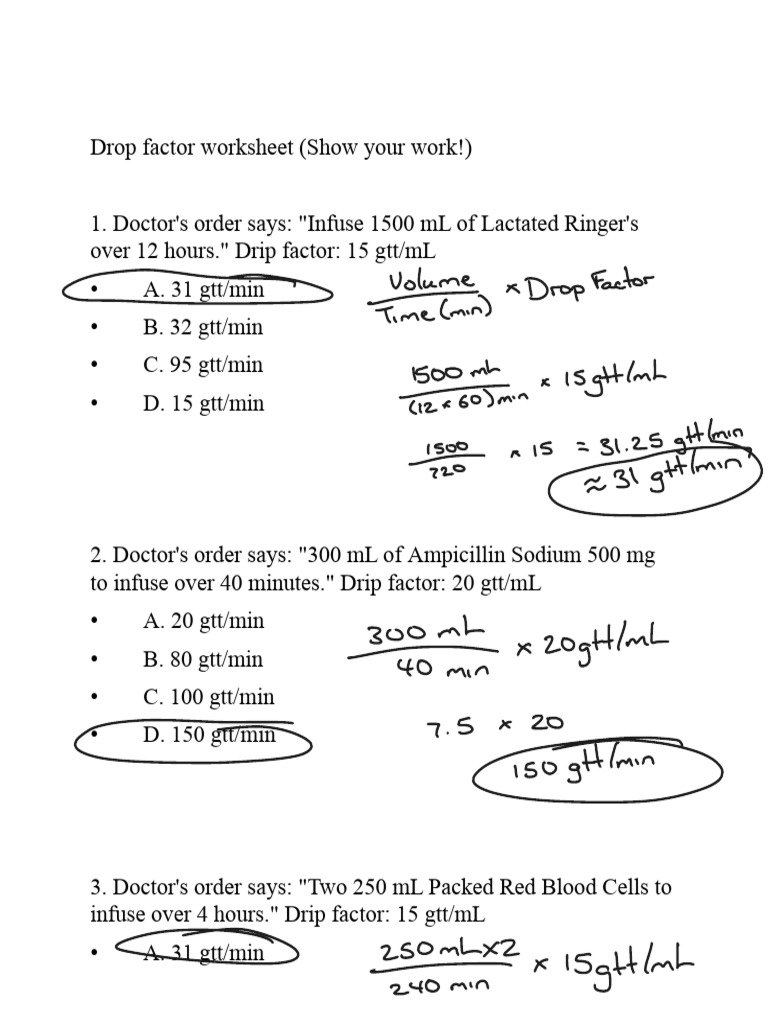 Drop factor worksheet (Show your work!)
1. Doctor's order says: "Infuse 1500 mL of Lactated Ringer's
over 12 hours." Drip factor: 15 gtt/mL
• A. 31 gtt/min
• B. 32 gtt/min
• C. 95 gtt/min
• D. 15 gtt/min
Volume
Time (min)
× Drop Factor
1500 mL
(12 × 60) min
× 15 gtt/mL
1500
720
× 15 = 31.25 gtt/min
≈ 31 gtt/min
2. Doctor's order says: "300 mL of Ampicillin Sodium 500 mg
to infuse over 40 minutes." Drip factor: 20 gtt/mL
• A. 20 gtt/min
• B. 80 gtt/min
• C. 100 gtt/min
• D. 150 gtt/min
300 mL
40 min
× 20 gtt/mL
7.5 × 20
150 gtt/min
3. Doctor's order says: "Two 250 mL Packed Red Blood Cells to
infuse over 4 hours." Drip factor: 15 gtt/mL
• A. 31 gtt/min
250 mL×2
240 min
× 15 gtt/mL